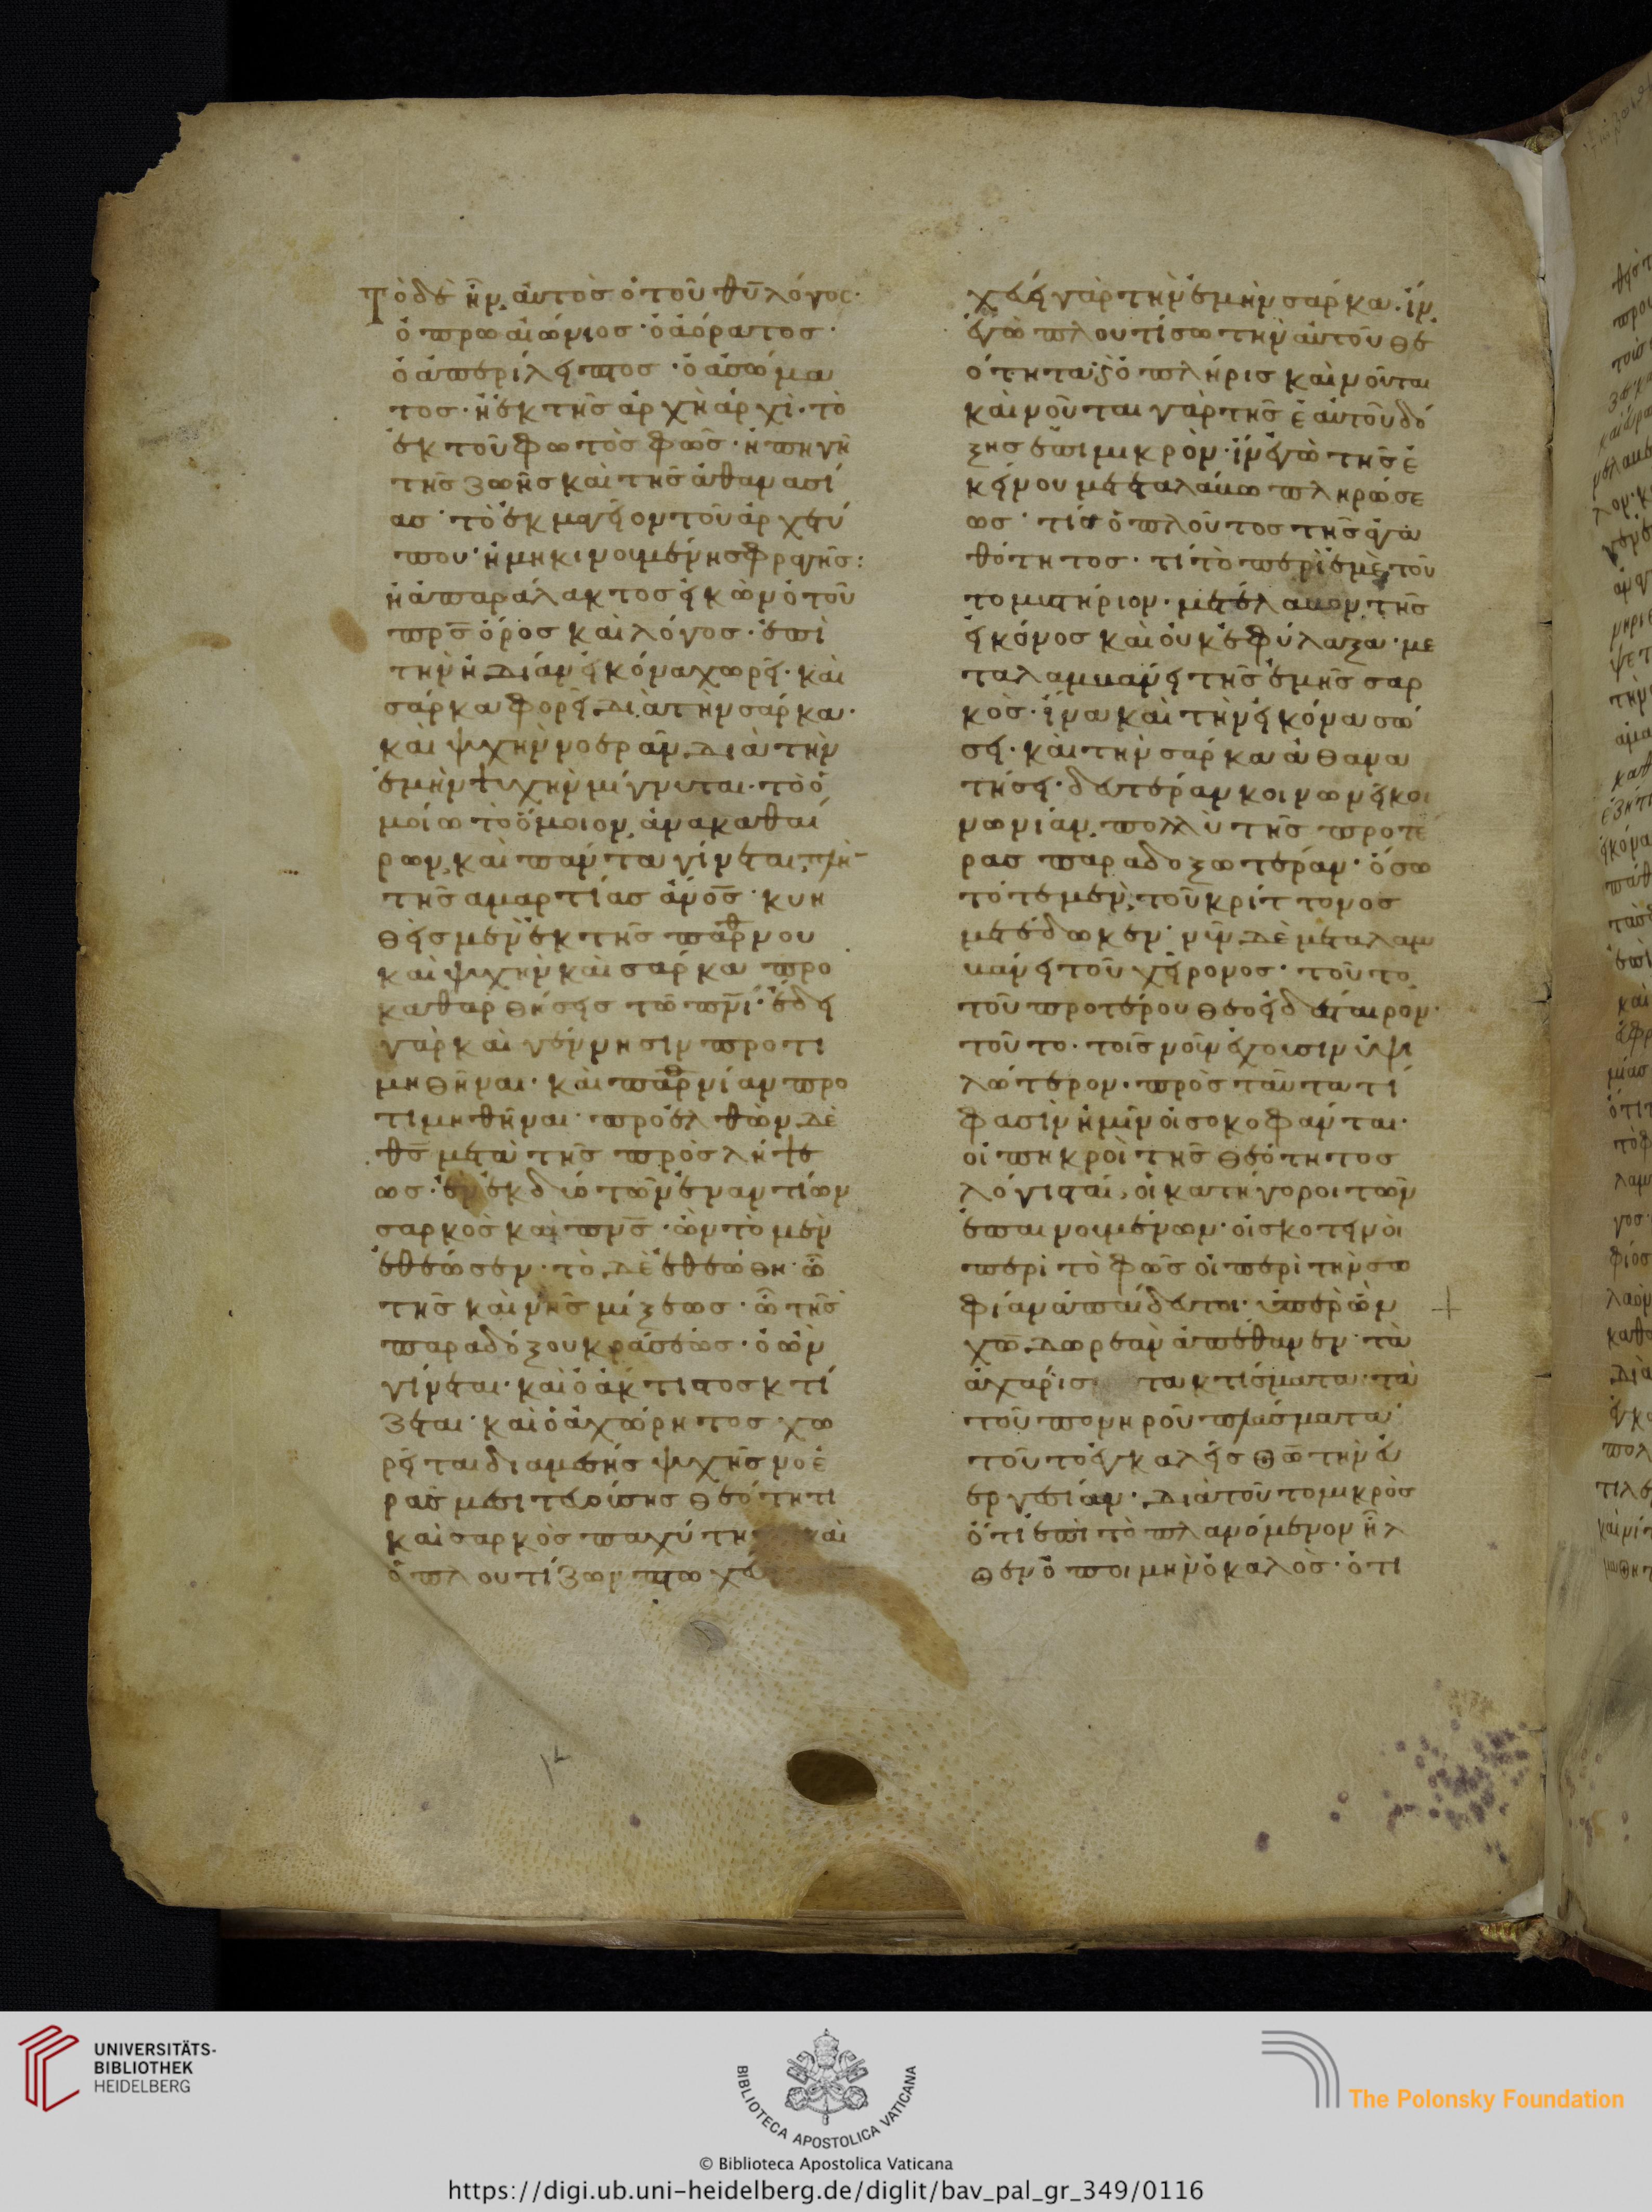 Τὸδὲ ἦν αὐτὸσ ὁτοῦ θ̅υ̅ λόγος·
ὁ πρωαιώνιοσ· ὁἀόρατοσ·
ὁἀπερίλειπτοσ· ὁἀσώμα
τοσ· ἡἐκ τῆσ ἀρχὴ ἀρχὶ· τὸ
ἐκ τοῦ φωτὸσ φῶσ· ἡ πηγὴ
τῆσ ζωῆσ καὶ τῆσ ἀθανασί
ασ· τὸ ἐκμαγεῖον τοῦ ἀρχετύ
που· ἡ μηκινουμένη σφραγῆσ:
ἡ ἀπαράλακτοσ εἰκὼν ὁ τοῦ
π̅ρ̅σ̅ ὅροσ καὶ λόγοσ· ἐπὶ
τὴν ἠδίαν εἰκόνα χωρεῖ· καὶ
σάρκα φορεῖ διὰ τὴν σάρκα·
καὶ ψυχὴν νοερὰν διὰ τὴν
ἐμὴν ψυχὴν μίγνυται· τὸ ὁ
μοίω τὸ ὅμοιον ἀνακαθαί
ρων καὶ πάντα γίνεται πλὴ
τῆσ αμαρτίασ ἀ̅ν̅ο̅σ̅· κυη
θεὶσ μὲν ἐκ τῆσ παρθνου
καὶ ψυχὴν καὶ σάρκα προ
καθαρθήσεισ τῶ π̅ν̅ι̅· ἔδει
γὰρ καὶ γέννησιν προτι
μηθῆναι· καὶ παρθνίαν προ
τιμηθῆναι· προελθὼν δὲ
θ̅σ̅ μετὰ τῆσ πρὸσ λήψε
ωσ· ἐν ἐκ δύο τῶν ἐναντίων
σαρκὸσ καὶ π̅ν̅σ̅· ὧν τὸ μὲν
ἐθέωσεν· τὸ δὲ ἐθεώθη· ὢ
τῆσ καινῆσ μίξεωσ· ὢ τῆσ
παραδόξου κράσεωσ· ὁ ὢν
γίνεται· καὶ ὁ ἄκτιστοσ κτί
ζεται· καὶ ὁ ἀχώρητοσ χω
ρεῖται διαμέσησ ψυχῆσ νοὲ
ρᾶσ μεσιτευούσησ θεότητι
καὶ σαρκὸσ παχύτητι καὶ
ὁ πλουτίζων πτωχεύει
χεύει γὰρ τὴν ἐμὴν σάρκα· ἵν
ἐγὼ πλουτίσω τὴν αὐτοῦ θε
ότητα· ϛ ὁ πλήρισ καὶνοῦται
καὶνοῦται γὰρ τῆσ ἑαυτοῦ δό
ξησ ἐπι μικρὸν· ἵν ἐγὼ τῆσ ἐ
κείνου μεταλάβω πληρώσε
ωσ· τίσ ὁ πλοῦτοσ τῆσ ἀγα
θότητοσ· τί τὸ περὶ ἐμὲ τοῦ
το μυστήριον· μετέλαβον τῆσ
εἰκόνοσ καὶ οὐκ ἐφύλαξα· με
ταλαμβάνει τῆσ ἐμῆσ σαρ
κὸσ· ἵνα καὶ τὴν εἰκόνα σώ
σει· καὶ τὴν σάρκα ἀθανα
τήσει· δευτέραν κοινωνεῖ κοι
νωνίαν πολλὺ τῆσ προτε
ρασ παραδοξωτέραν· ὅσω
τότε μὲν τοῦ κρίττονοσ
μετέδωκεν· νῦν δὲ μεταλαμ
βάνει τοῦ χείρονοσ· τοῦτο
τοῦ προτέρου θεοειδέστερον·
τοῦτο· τοῖσ νοῦν ἔχουσιν ὑψι
λώτερον· πρὸσ ταῦτα τί
φασὶν ἡμῖν οἱ σοκοφάνται·
οἱ πηκροὶ τῆσ θεότητοσ
λόγισταί, οἱ κατήγοροι τῶν
ἐπαινουμένων· οἱ σκοτεινοὶ
περὶ τὸ φῶσ οἱ περὶ τὴν σο
φίαν ἀπαίδευτοι· ὑπὲρ ὧν
χ̅σ̅ δωρεὰν ἀπέθανεν· τὰ
ἀχάρισ τα κτίσματα· τὰ
τοῦ πονηροῦ πλάσματα·
τοῦτο ἐγκαλεῖσ θ̅ω̅ τὴν εὐ
εργεσίαν· διὰ τοῦτο μικρὸσ
ὅτί ἐπὶ τὸ πλανόμενον ἦλ
θεν ὁ ποιμὴν ὁ καλὸσ· ὅτι
UNIVERSITÄTS-
BIBLIOTHEK
HEIDELBERG
BIBLIOTECA APOSTOLICA VATICANA
The Polonsky Foundation
© Biblioteca Apostolica Vaticana
https://digi.ub.uni-heidelberg.de/diglit/bav_pal_gr_349/0116